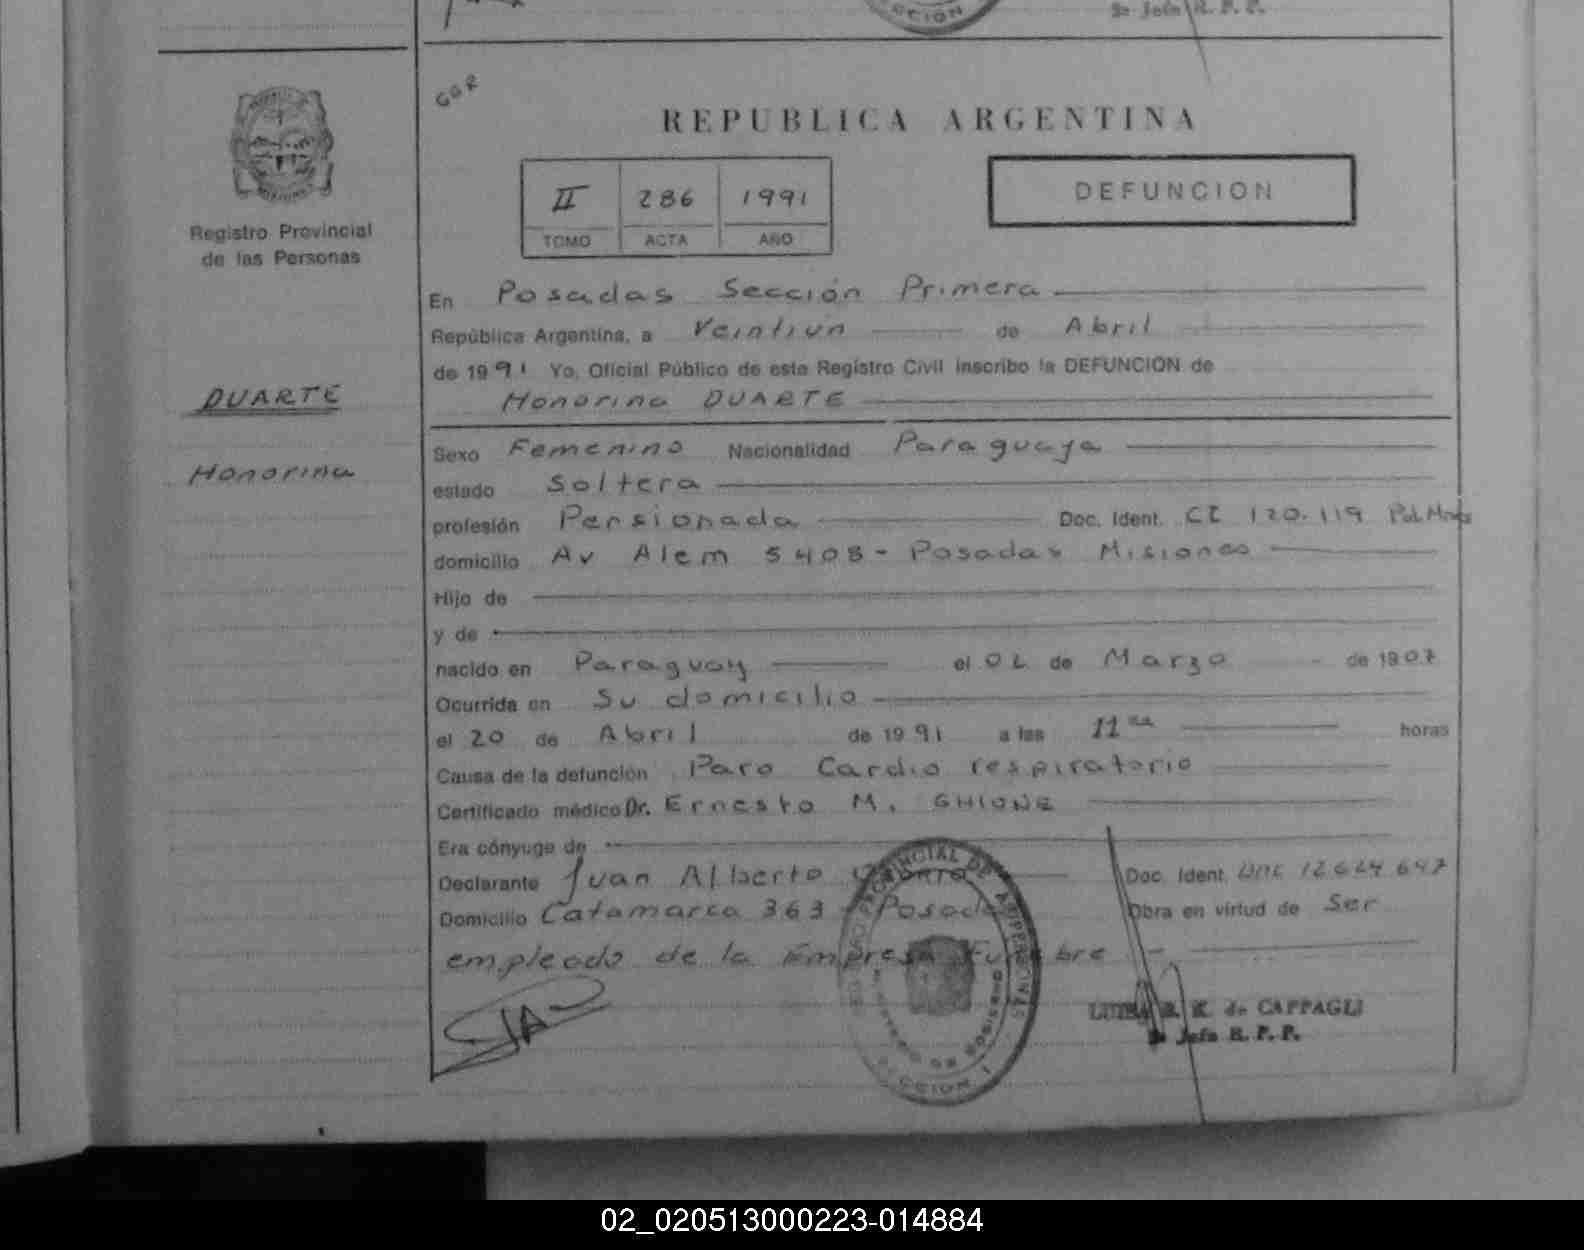 CCION
2e Jefe R. P. P.
GGR
REPUBLICA ARGENTINA
II 286 1991
TOMO ACTA AÑO
DEFUNCION
Registro Provincial
de las Personas
En Posadas Sección Primera
República Argentina, a Veintiun de Abril
de 1991 Yo, Oficial Público de este Registro Civil inscribo la DEFUNCION de
Honorina DUARTE
DUARTE
Honorina
Sexo Femenino Nacionalidad Paraguaya
estado Soltera
profesión Pensionada Doc. Ident. CI 120.119 Pol. Mnes
domicilio Av Alem 5408 - Posadas Misiones
Hijo de
y de
nacido en Paraguay el 02 de Marzo de 1907
Ocurrida en Su domicilio
el 20 de Abril de 1991 a las 11 horas
Causa de la defunción Paro Cardio respiratorio
Certificado médico Dr. Ernesto M. GHIONE
Era cónyuge de
Declarante Juan Alberto Doc. Ident. 12.624.647
Domicilio Catamarca 363 - Posadas Obra en virtud de Ser
empleado de la Empresa Funebre
REGISTRO PROVINCIAL DE LAS PERSONAS
MINISTERIO DE GOBIERNO
SECCION 1
LUISA R. K. de CAPPAGLI
2e Jefe R. P. P.
02_020513000223-014884